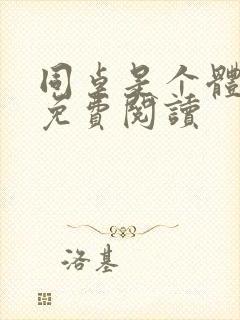 同桌是个體
免費閱讀
洛基